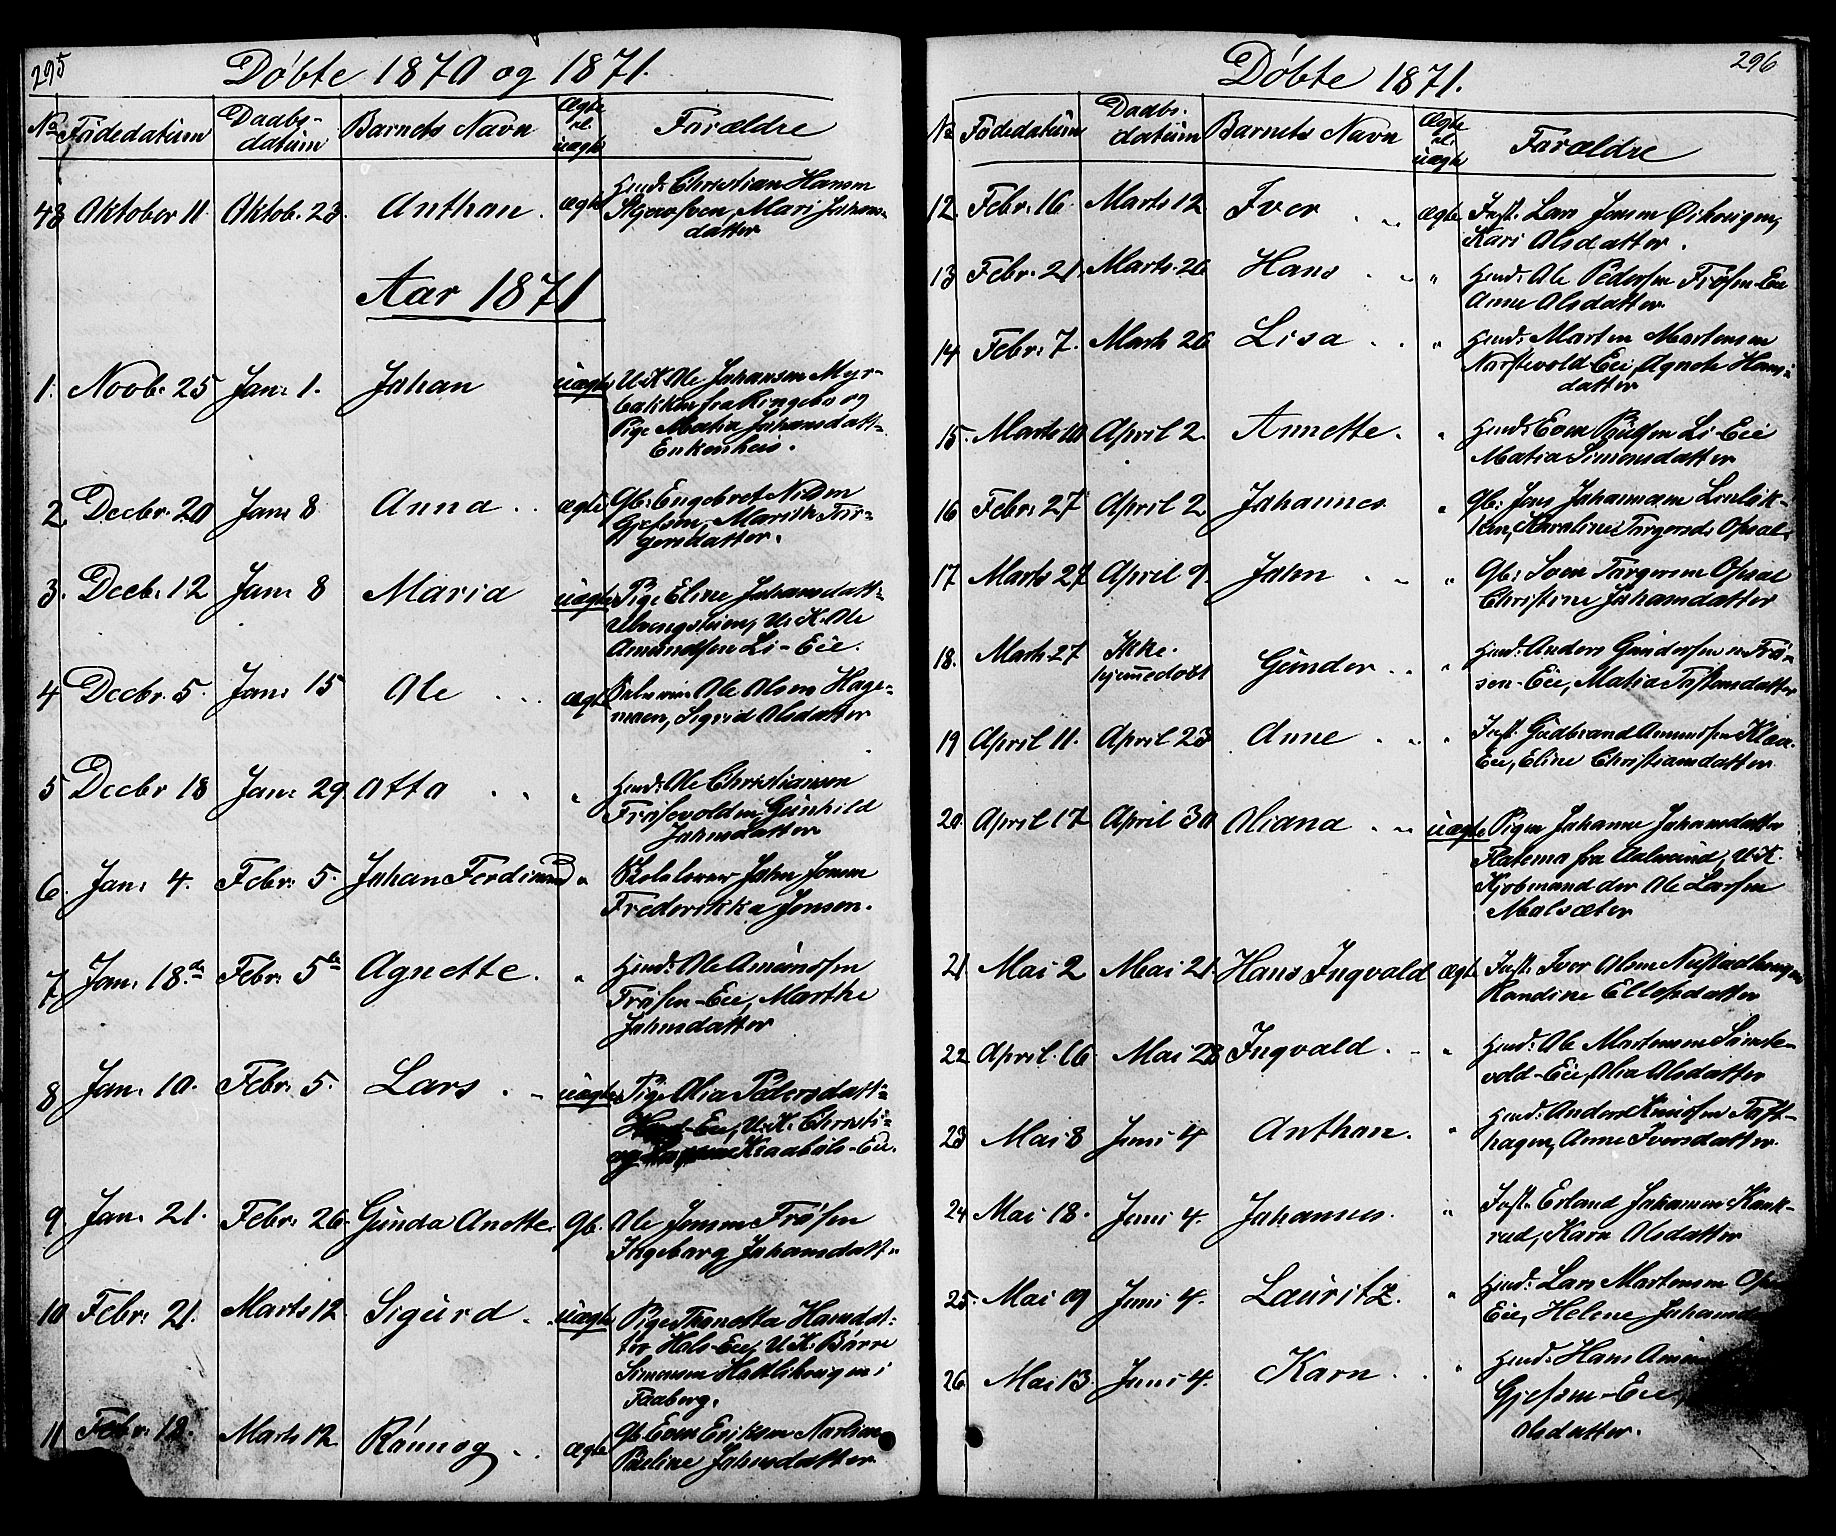 295
Døbte 1870 og 1871.
No Fødedatum Daabs-datum Barnets Navn Ægte el. uægte Forældre
43 Oktober 11. Oktob. 23. Anthon. ægte Huusm. Christian Hansen
Mari Johans-
datter
Aar 1871
1. Novb. 25 Jan. 1. Johan uægte U.K. Ole Johansen Myr-
bakken fra Ringebo og
Pige Mathia Johansdatt-
Enkenhus.
2. Decbr. 20 Jan. 8 Anna ægte Gb. Engebret Nilsen
Gjefsen, Marith Tor-
gersdatter.
3. Decb. 12 Jan. 8 Maria uægte Pige Eline Johansdatt-
U.K. Ole
Amundsen Li-Eie.
4 Decbr. 5. Jan. 15 Ole ægte Ole Olsen Hage-
moen, Sigrid Olsdatter
5 Decbr 18 Jan. 29. Otto " Huusm. Ole Christiansen
Frøsvolden, Gunhild
Johnsdatter
6. Jan. 4. Febr. 5. Johan Ferdinand " Skolelærer John Jonsen
Frederikka Jensen.
7 Jan. 18de Febr. 5te Agnette. " Huusm. Ole Amundsen
Frøsen-Eie, Marthe
Johnsdatter
8 Jan. 10. Febr. 5. Lars uægte Pige Olia Pedersdatt-
Eie, U.K. Christi-
Kraabøls-Eie.
9. Jan. 21. Febr. 26. Gunda Anette. Gb. Ole Jonsen Frøsen
Ingeborg Johansdatt-
10 Febr. 21. Marts 12. Sigurd uægte Pige Thonetta Hansdat-
ter Hols-Eie, U.K. Børre
Simensen i
Faaberg.
11 Febr. 12. Marts 12. Rønnog ægte Gb. Even Eriksen
Pauline Johnsdatter
296
Døbte 1871.
No Fødedatum Daabs-datum Barnets Navn Ægte el. uægte Forældre
12. Febr. 16. Marts 12 Iver ægte Inst. Lars Jonsen
Kari Olsdatter.
13 Febr. 21. Marts 26 Hans " Huusm. Ole Pedersen Frøsen-Eie
Anne Olsdatter
14 Febr. 7. Marts 26 Lisa " Huusm. Morten Mortensen
Eie, Agnete Hans-
datter
15. Marts 10 April 2. Annette. " Huusm. Even Li-Eie
Matia Simensdatter
16 Febr. 27 April 2. Johannes " Gb. Jens Johannesen
Karoline Torgersd. Opsal.
17. Marts 27 April 9. John " Gb. Sven Torgersen Opsal
Christine Johansdatter
18. Marts 27 Ikke hjemmedøbt Gunder " Huusm. Anders Gundersen Frø-
sen-Eie, Matia Tostensdatter
19 April 11. April 23. Anne " Inst. Gudbrand Amundsen
Eie, Eline Christiansdatter.
20. April 17 April 30 Oliana uægte Pigen Johanne Johansdatter
fra Aalesund, U.K.
Kjøbmand der Ole Larsen
Malsæter
21. Mai 2 Mai 21. Hans Ingvald ægte Inst. Iver Olsen
Randine Ellefsdatter
22 April. 16 Mai 28 Ingvald. " Huusm. Ole Mortensen
vold-Eie, Olia Olsdatter
23 Mai 8 Juni 4 Anthon. " Huusm. Anders Knudsen Toft-
hagen, Anne Iversdatter.
24 Mai 18. Juni 4. Johannes. " Inst. Erland Johansen
rud, Karn Olsdatter
25. Mai 9 Juni 4. Lauritz. " Huusm. Lars Mortensen
Eie, Helene
26 Mai 13. Juni 4. Karn " Huusm. Hans
Gjefsen-Eie,
Olsdatter.